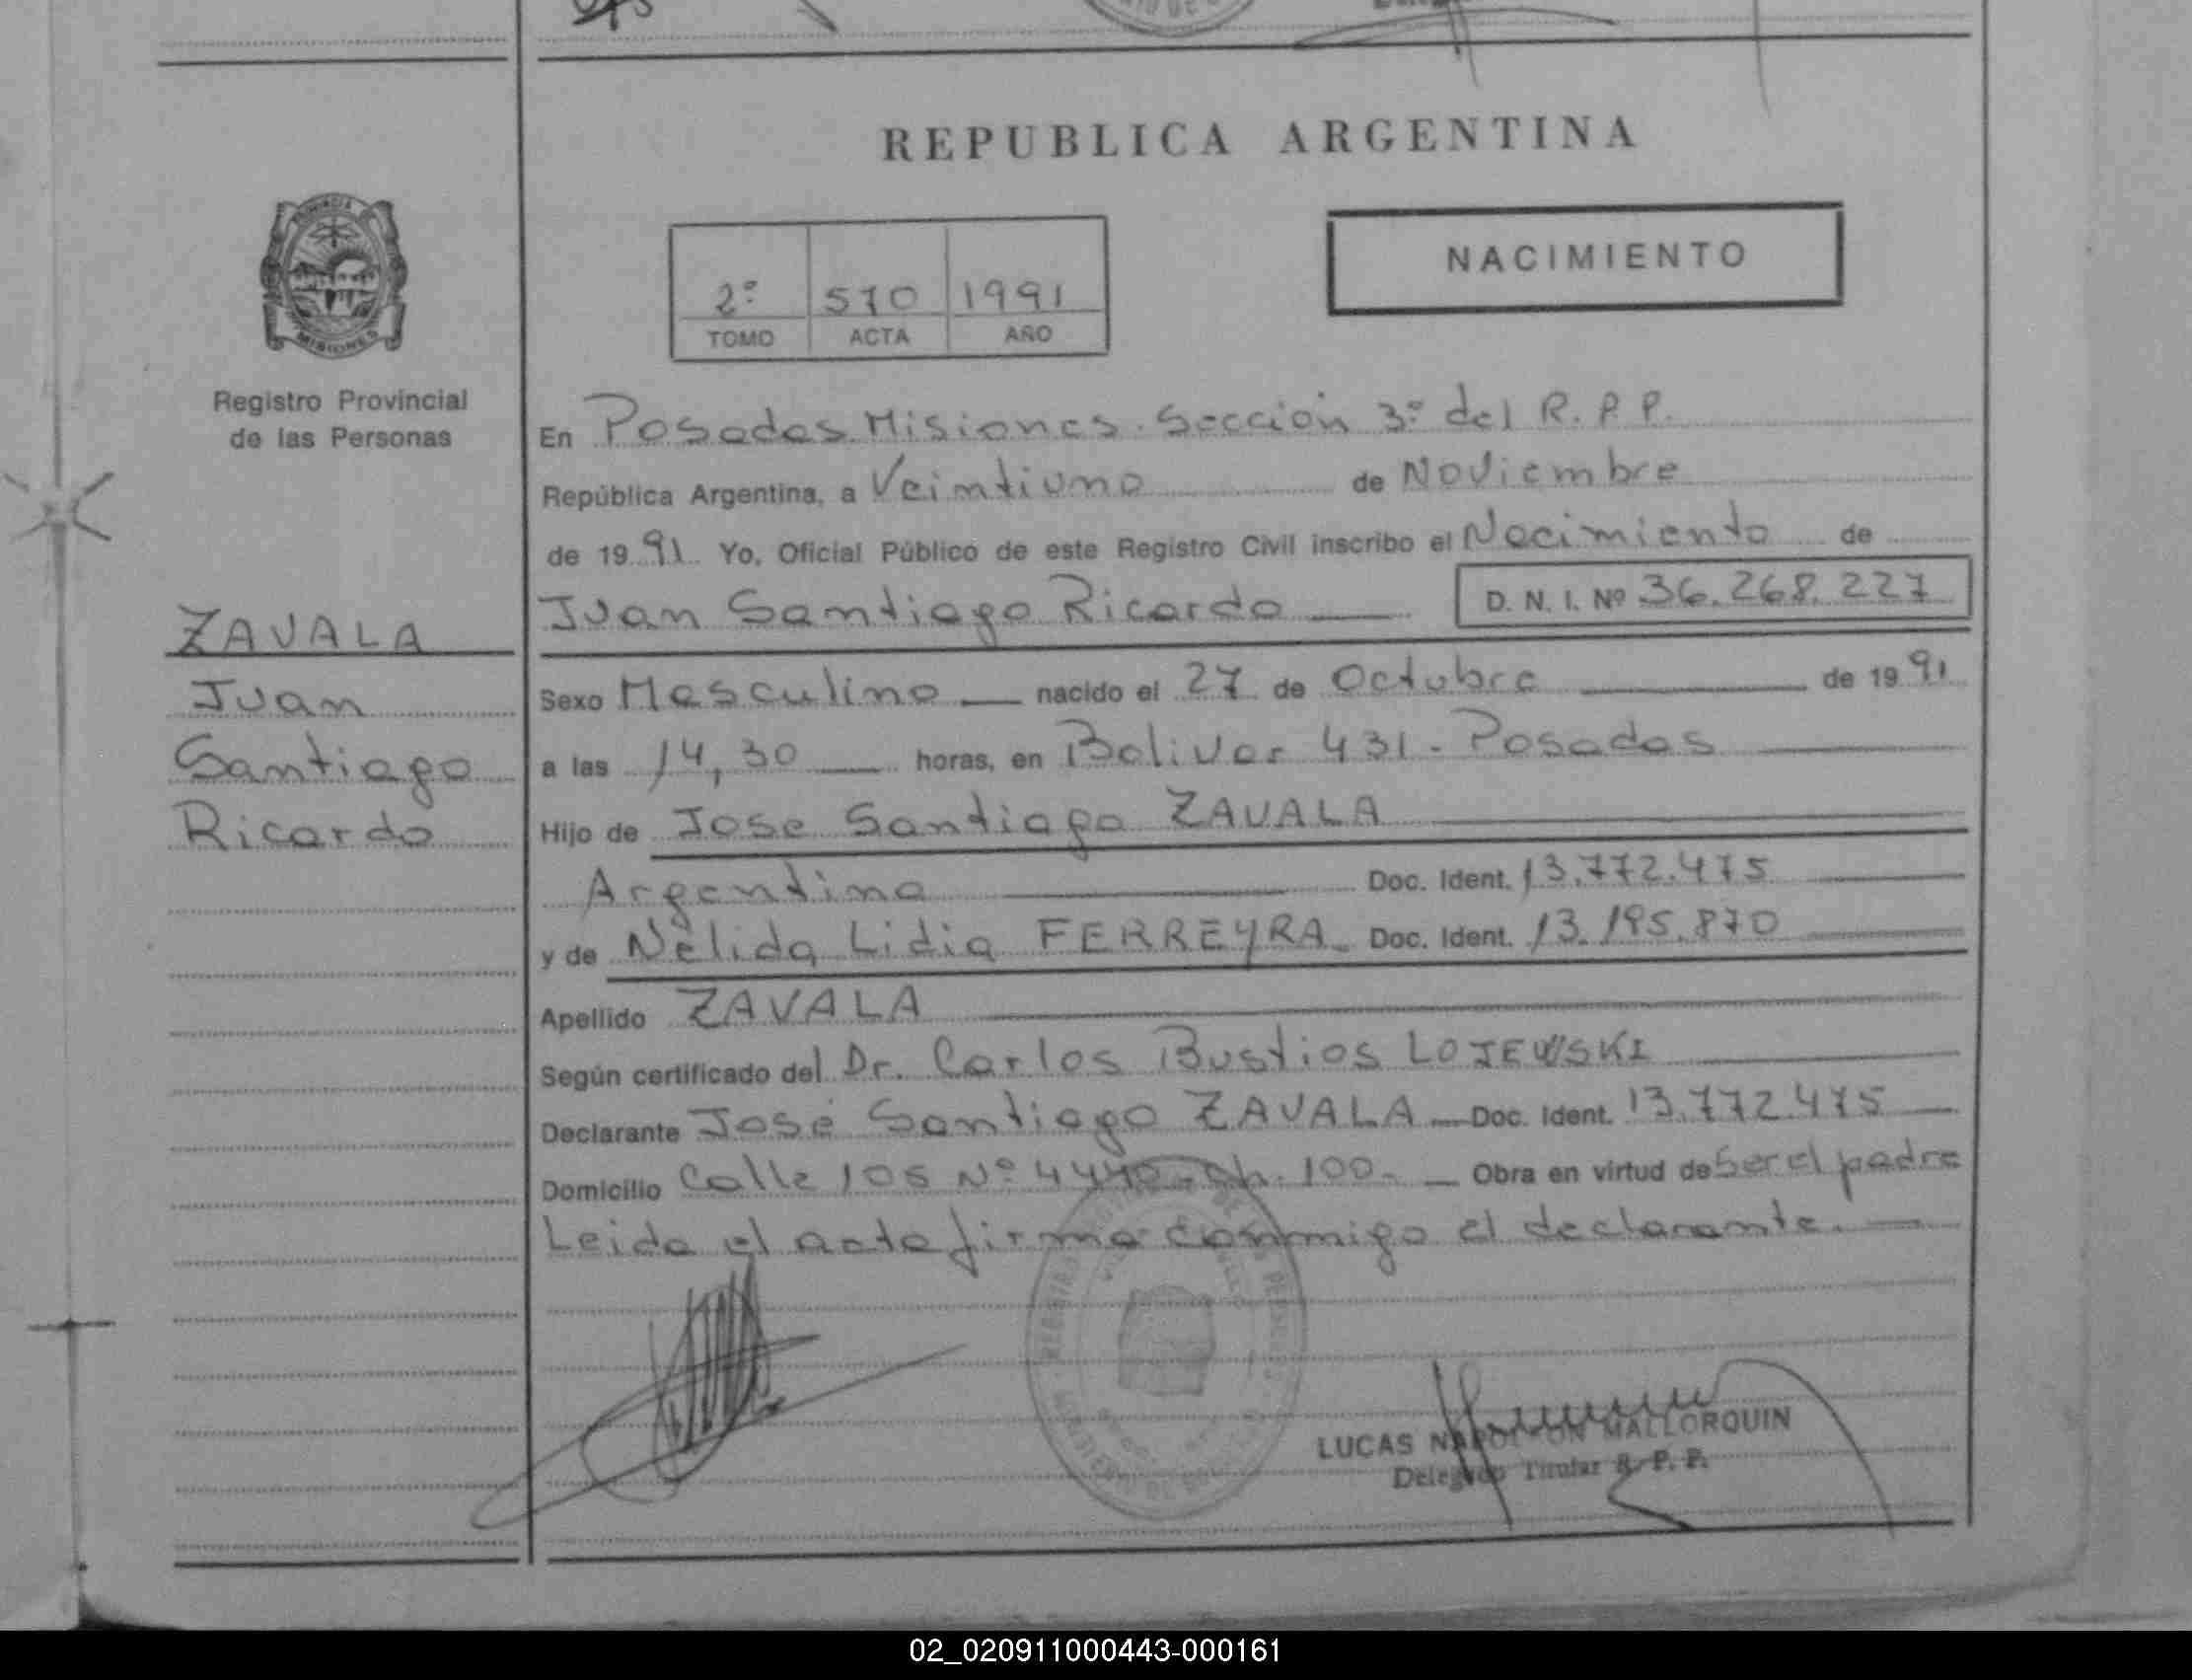 REPUBLICA ARGENTINA
PROVINCIA
MISIONES
NACIMIENTO
2º 570 1991
TOMO ACTA AÑO
Registro Provincial
de las Personas
En Posadas Misiones. Sección 3º del R. P. P.
República Argentina, a Veintiuno de Noviembre
de 1991 Yo, Oficial Público de este Registro Civil inscribo el Nacimiento de
Juan Santiago Ricardo D. N. I. Nº 36.268.227
ZAVALA
Juan
Santiago
Ricardo
Sexo Masculino nacido el 27 de Octubre de 1991
a las 14,30 horas, en Bolivar 431 - Posadas
Hijo de Jose Santiago ZAVALA
Argentina Doc. Ident. 13.772.475
y de Nélida Lidia FERREYRA Doc. Ident. 13.195.870
Apellido ZAVALA
Según certificado del Dr. Carlos Bustios LOJEWSKI
Declarante José Santiago ZAVALA Doc. Ident. 13.772.475
Domicilio Calle 105 Nº Ch. 100- Obra en virtud de Ser el padre
Leida el acta firma conmigo el declarante.
LUCAS NAPOLEON MALLORQUIN
Delegado Titular R. P. P.
02_020911000443-000161